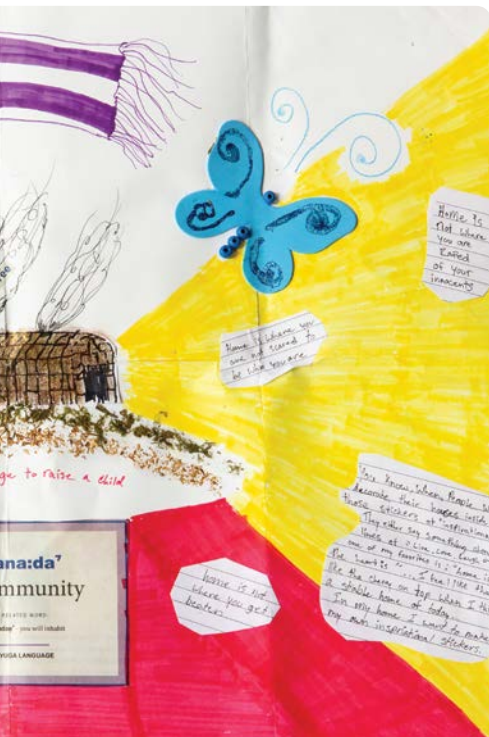 Home is
not where
you are
Robbed
of your
innocents
Home is where you
are not scared to
be who you are
ge to raise a child
ana:da⁷
mmunity
RELATED WORD:
you will inhabit
YUGA LANGUAGE
home is not
where you get
beaten
You know, when People
decorate their houses
those stickers of "inspirational
They either say something
lines of: Live, Love, Laugh or
one of my favorites is: "home is
the heart is"... I feel like
like the cherry on top when I
a stable home of today.
In my home I want to make
my own inspirational stickers.